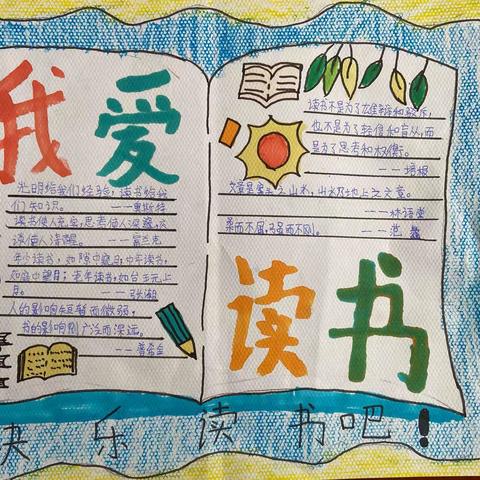 我爱
光明给我们经验，读书给我
们知识。 ——奥斯特
读书使人充实，思考使人深邃，交
谈使人清醒。 ——富兰克
年少读书，如隙中窥月；中年读书，
如庭中望月；老年读书，如台上玩上
月。 ——张潮
人的影响短暂而微弱，
书的影响则广泛而深远。
——普希金
读书不是为了雄辩和驳斥，
也不是为了轻信和盲从，而
是为了思考和权衡。
——培根
文章是案头之山水，山水乃地上之文章。
——林语堂
柔而不屈，强而不刚。 ——范蠡
读书
快乐读书吧！